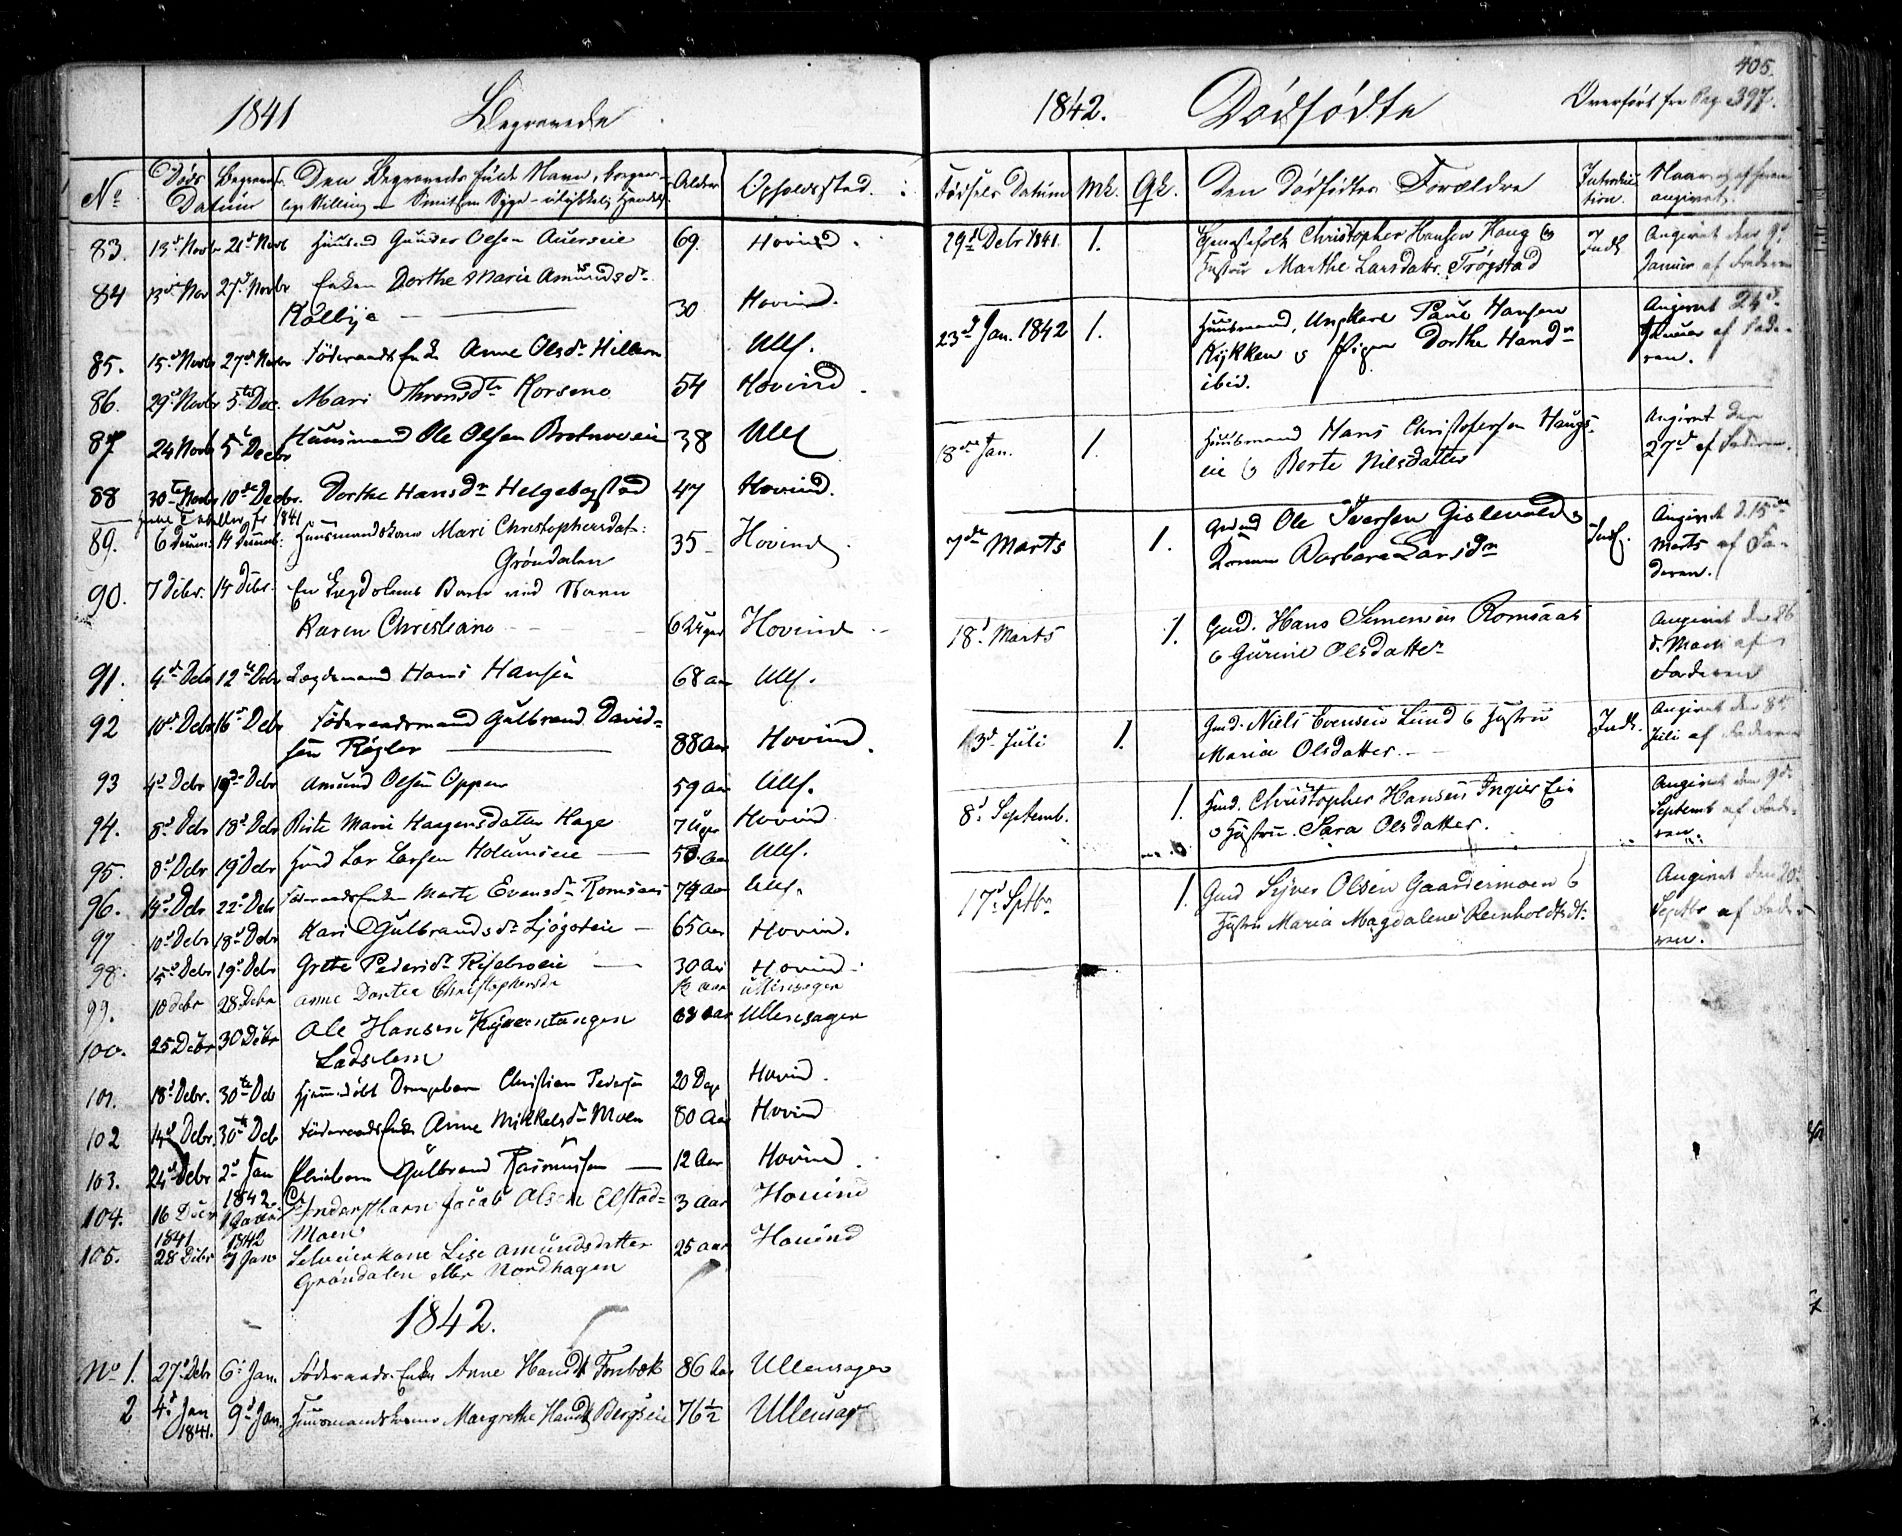 1841 Begravede
No Døds Datum Begravels. Den Begravedes fulde Navn, borger-
lige Stilling Alder Opholdssted.
83. 13d Novbr 21d Novb Huusmd Gunder Olsen Auerseie 69. Hovind.
84 13d Nov 27d Novbr Enken Dorthe Marie Amundsdr
Kølbye 30 Hovind.
85. 15d Novbr 27d Novbr Föderaads Enke Anne Olsdr Hillern Ulls.
86. 29d Novbr 5te Dec. Mari Thronsdtr Korsmo 54 Hovind.
87 24 Novb 5te Decbr Huusmand Ole Olsen Brotnoeie 38 Ulls
88 30te Novbr 10de Decbr. Dorthe Hansdr Helgebogstad 47 Hovind.
1841
89. 6 14 Huusmandskone Mari Christophersdat: 35 Hovind.
Grøndalen
90. 7 Dcbr. 14 Dcbr. En Lægdslems Barn ved Navn
Karen Christiane 6 Uger Hovind
91. 4d Debr 12te Debr Lægdsmand Hans Hansen 68 aar Ulls.
92 10d Debr 16d Debr Föderaadsmand Gulbrand David-
sen Røgler 88 Aar Hovind.
93 4d Debr 19de Debr Amund Olsen Oppen 59 Aar Ulls.
94. 8d Debr 18d Debr Birte Marie Haagensdatter Hage 7 Uger Hovind
95. 8d Debr 19d Debr Huusmd Lars Larsen Holumseie 50. Aar Ulls.
96. 14d Debr 22d Debr Föderaads Enken Marte Evensdr Romsaas 74 Aar Ulls.
97 10d Debr 18d Debr Kari Gulbrandsdr Ljøgoteie 65 Aar Hovind.
98. 15d Debr 19d Debr Grethe Pedersdr Risebroeie 30 Aar Hovind.
99. 10 Debr 28 Debr Anne Dortea Christophersdr ½ aar Ullensager
100. 25 Debr 30 Debr Ole Hansen Kverntangen 63 aar Ullensager
Ladslem
101. 18d Debr. 30te Deb Hjemmedøbt Drengebarn Christian Pedersen 20 Dage Hovind.
102 14d Debr. 30te Deb Föderaads Enke Anne Mikkelsdr Moen 80 Aar Hovind
103. 24d Debr 2d Jan Gulbrand Rasmussen 12 Aar Hovind.
104. 16 Decbr 1842 Jacob Olsen Elstad- 3 aar Hovind
1841 1842 Moen
105. 28 Debr 7 Jan Selveierkone Lise Amundsdatter 25 aar Hovind
Grøndalen eller Nordhagen
1842.
No 1. 27d Debr 6d Jan. Föderaads Enke Anne Hansdt Fonbæk 86 Aar Ullensager
2 4d Jan 9d Jan. Huusmandskone Margrethe Hansdt Bergseie 76½ Ullensager
1841.
405.
1842. Dødfødte Overført fra Pag. 397.
Fødsels Datum Mk. Qk. Den Dødfødtes Forældre Introduc-
tion. Naar og af hvem
angivet.
29d Debr 1841. 1. Christopher Hansen Haug og
Hustru Marthe Larsdatr. Trøgstad Indl Angivet den 9d
Januar af Faderen
23d Jan. 1842 1. Huusmand, Ungkarl Paul Hansen
Kykken og Pigen Dorthe Hansdr
ibid. Angivet 24d
Januar af Fade-
ren.
18de Jan. 1. Huusmand Hans Christophersen Haugs-
eie og Berte Nilsdatter Angivet den
27d af Faderen.
7de Marts 1. Grmd Ole Iversen Gislevold og
Konen Barbara Larsdr Indl. Angivet d. 15de
Marts af Fa-
deren.
18d Marts 1. Gmd. Hans Simensen Romsaas
og Gurine Olsdatter Angivet den 26
d. Marts af
Faderen
3d Juli 1. Gmd. Niels Evensen Lund og Hustru
Maria Olsdatter. Indl. Angivet den 8d
Juli af Faderen
8d Septemb. 1. Hmd. Christopher Hansen Ingier Eie
og Hustru. Sara Olsdatter. Angivet den 9de
Septemb af Fade-
ren.
17d Septbr 1. Gmd Syver Olsen Gaardermoen og
Hustru Maria Magdalene Reinholdtsdt: Angivet den 20d
Septbr af Fade-
ren.